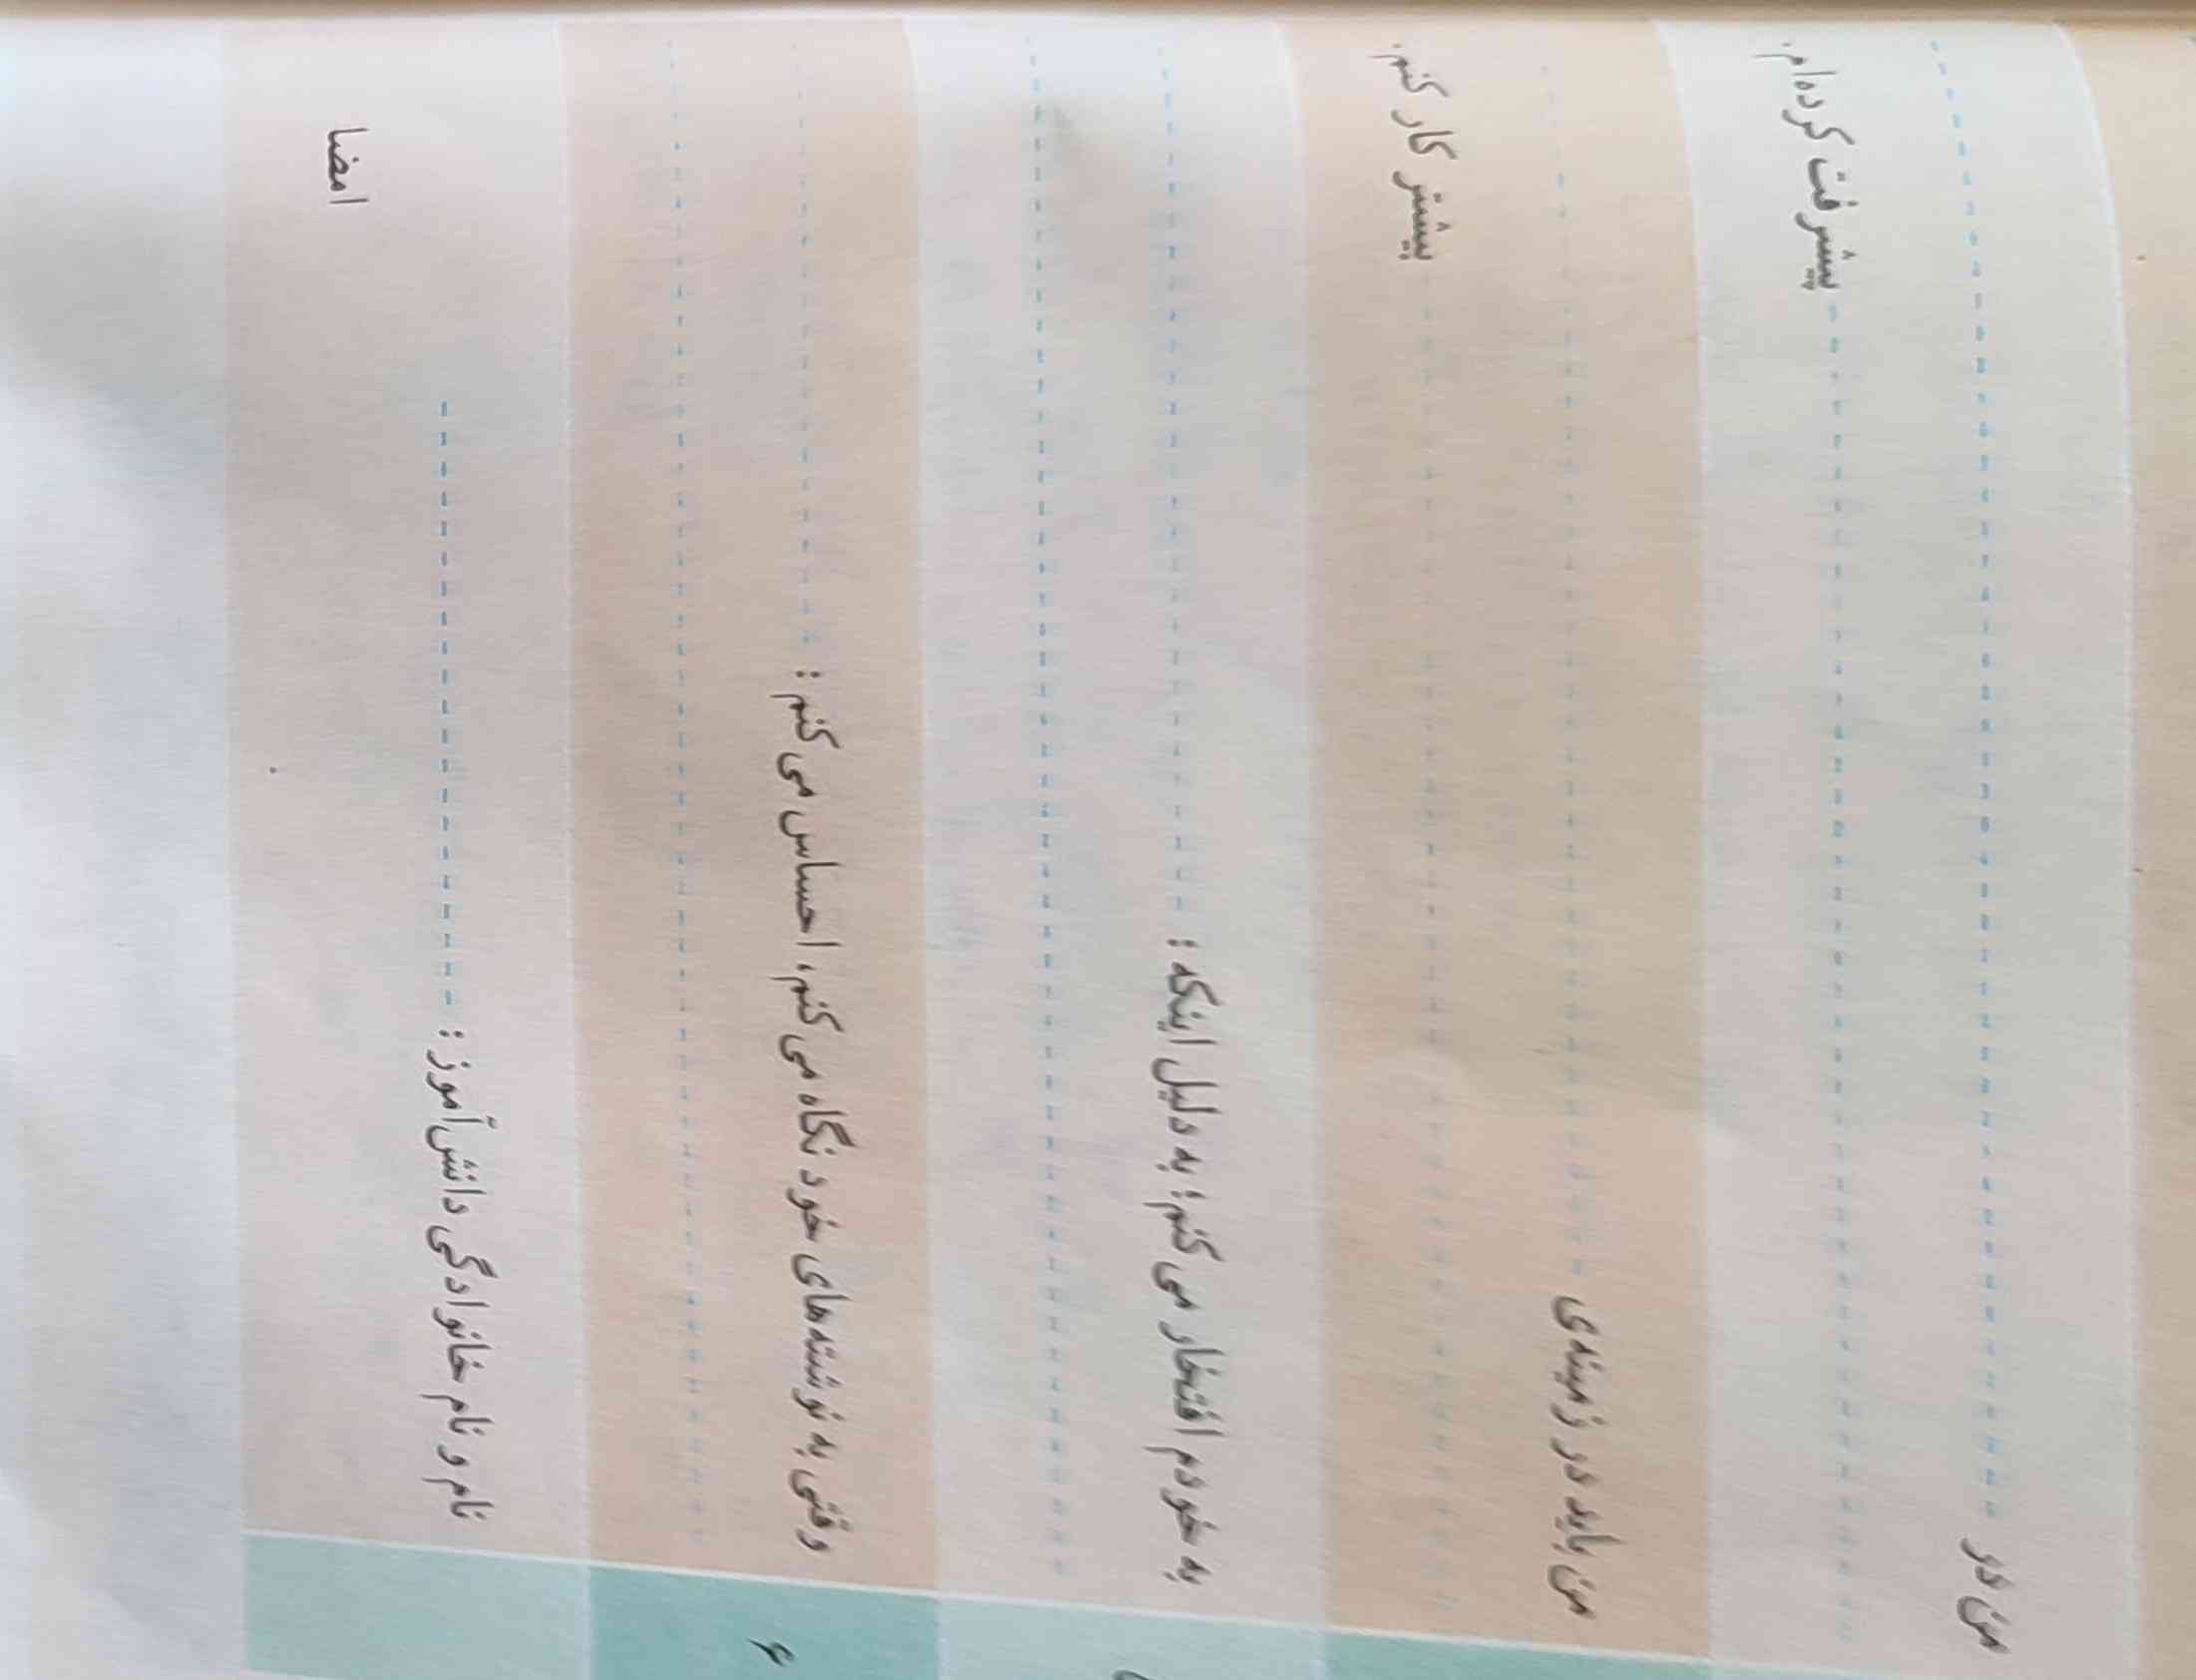 من در
پیشرفت کرده‌ام.
من باید در زمینه‌ی
بیشتر کار کنم.
به خودم افتخار می‌کنم؛ به دلیل اینکه :
۶ وقتی به نوشته‌های خود نگاه می‌کنم، احساس می‌کنم :
نام و نام خانوادگی دانش‌آموز :
امضا